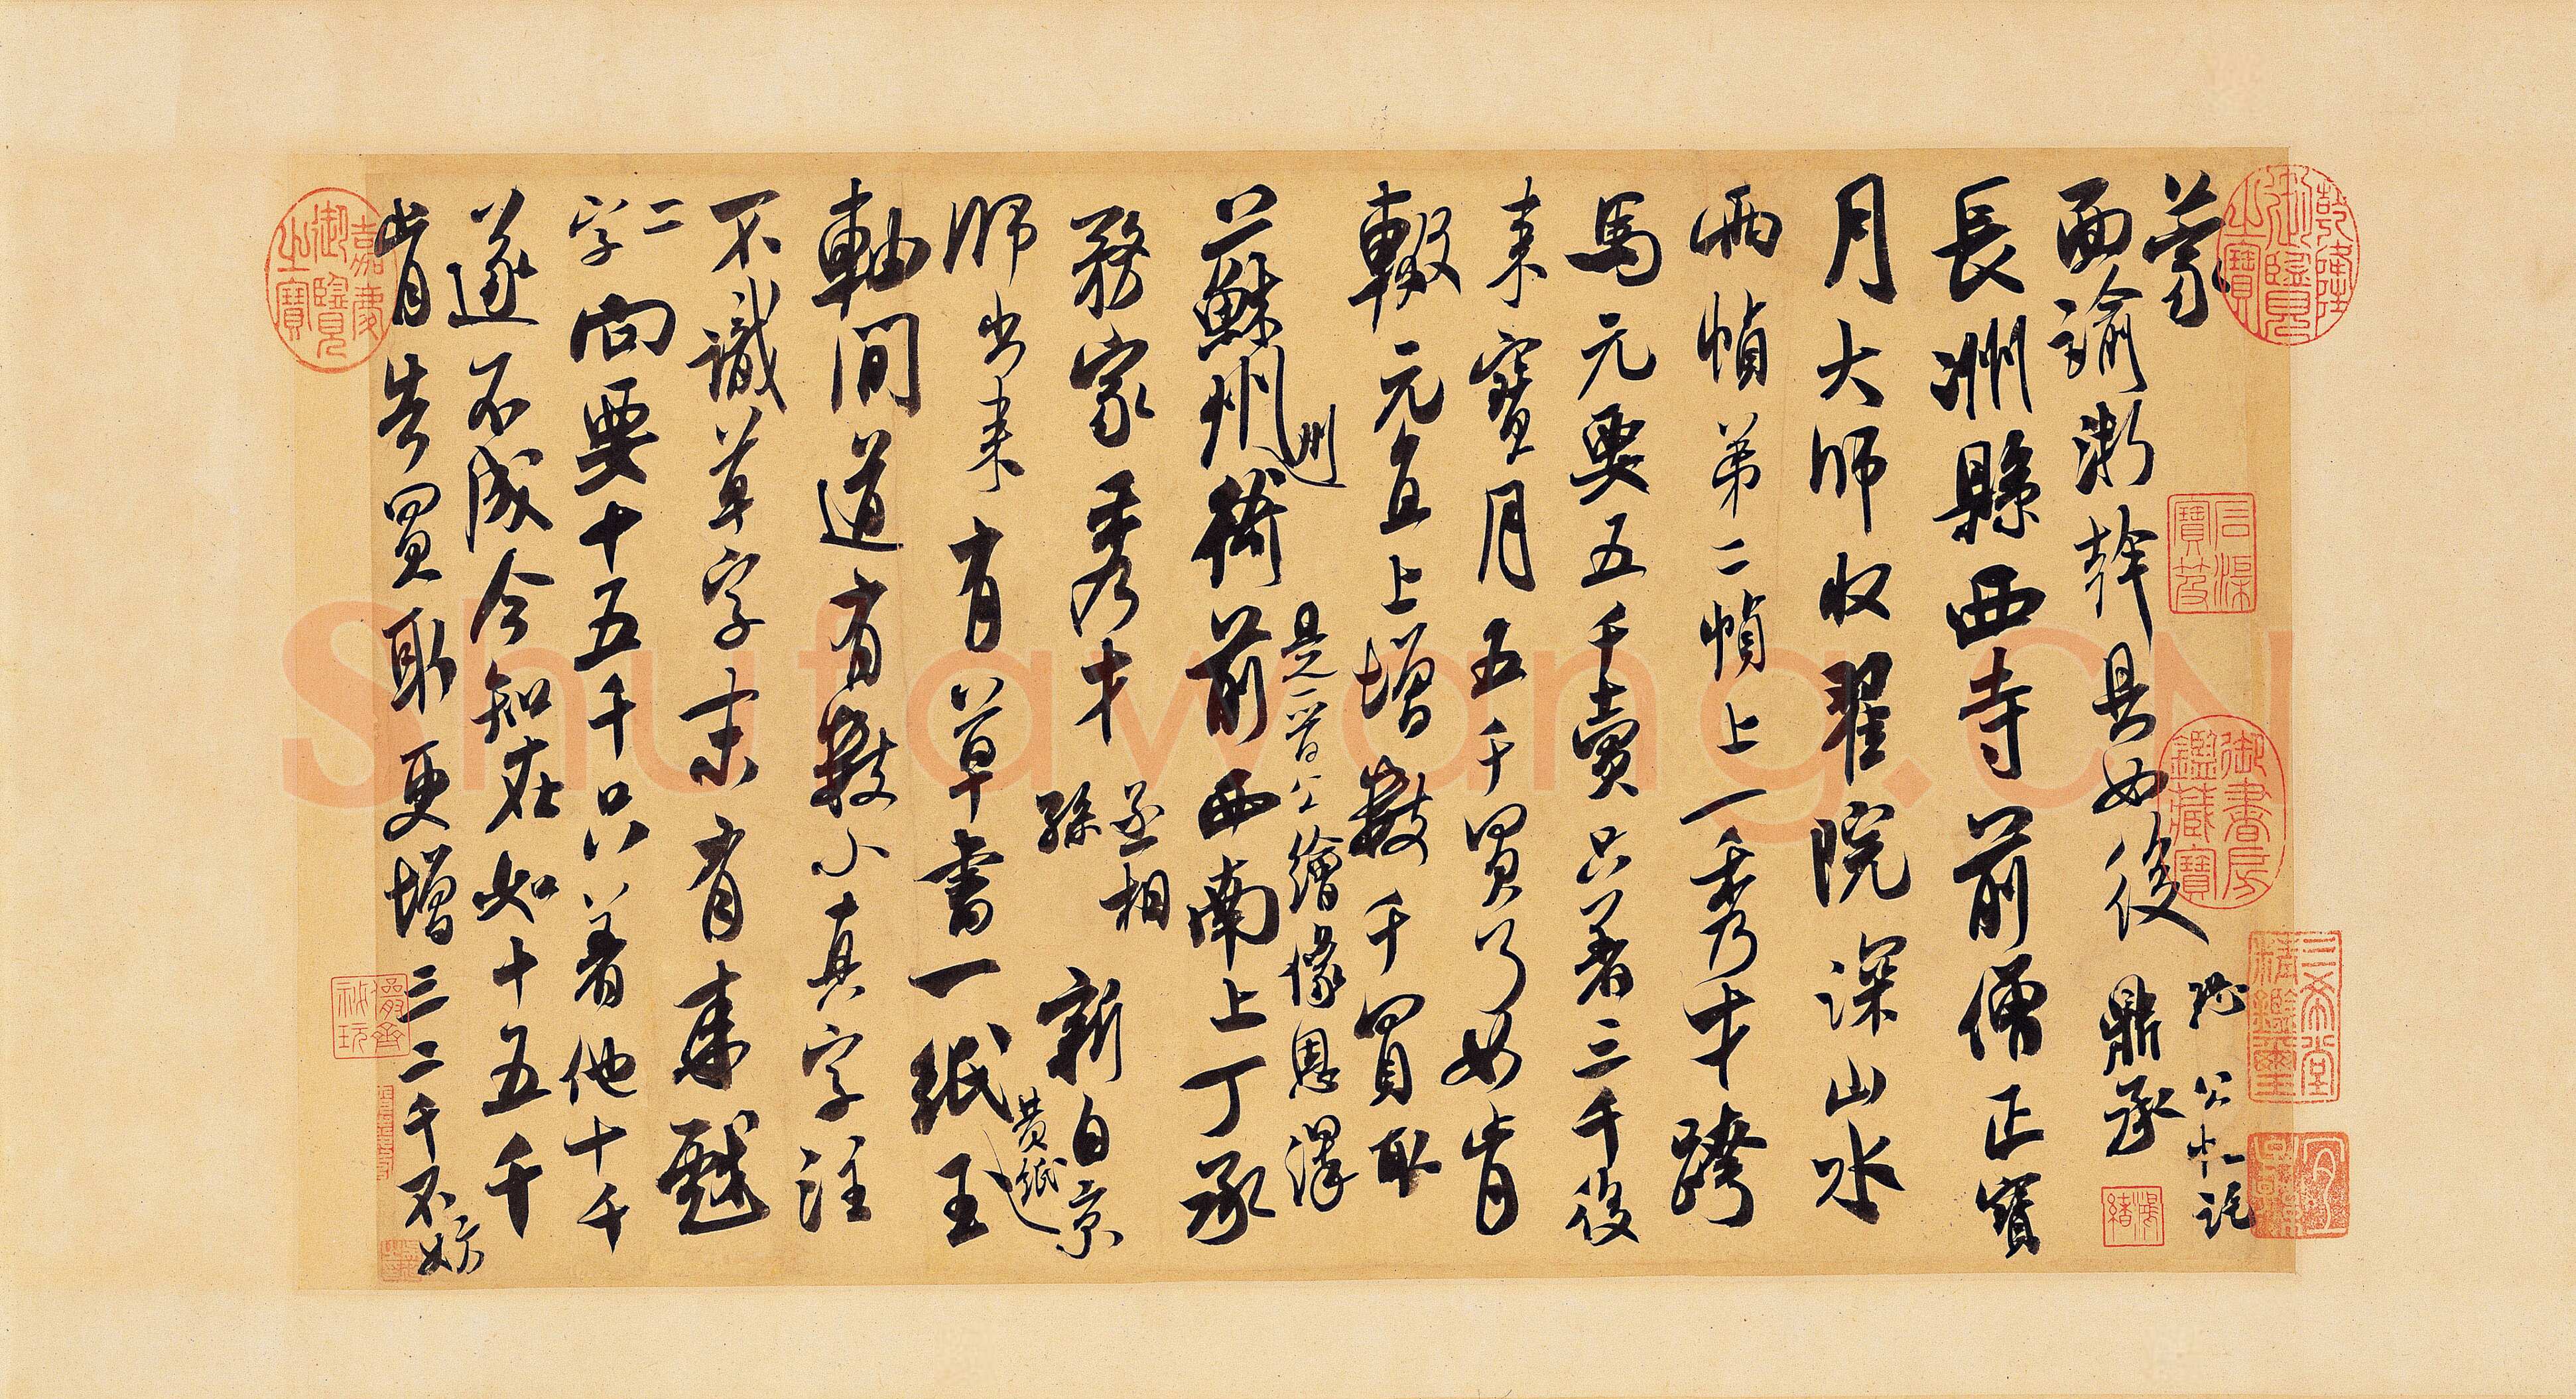 蒙
面諭浙幹具如後 鼎丞
長洲縣西寺前僧正寶
月大師收翟院深山水
兩幀第二幀上一秀才跨
馬元要五千賣只著三千後
来寶月五千買了如肯
輟元直上增數千買取
蘇州州衙前西南上丁承
是晉公繪像恩澤
務家秀才丞相孫新自京
師出来有草書一紙黃紙玉
軸間道有數小真字注
不識草字末有来戲
二字向要十五千只著他十千
遂不成今知在如十五千
肯告買取更增三二千不妨
乾隆御覽之寶
石渠寶笈
御書房鑑藏寶
三希堂精鑑璽
宜子孫
嘉慶御覽之寶
儼齋秘玩
Shufawang.CN